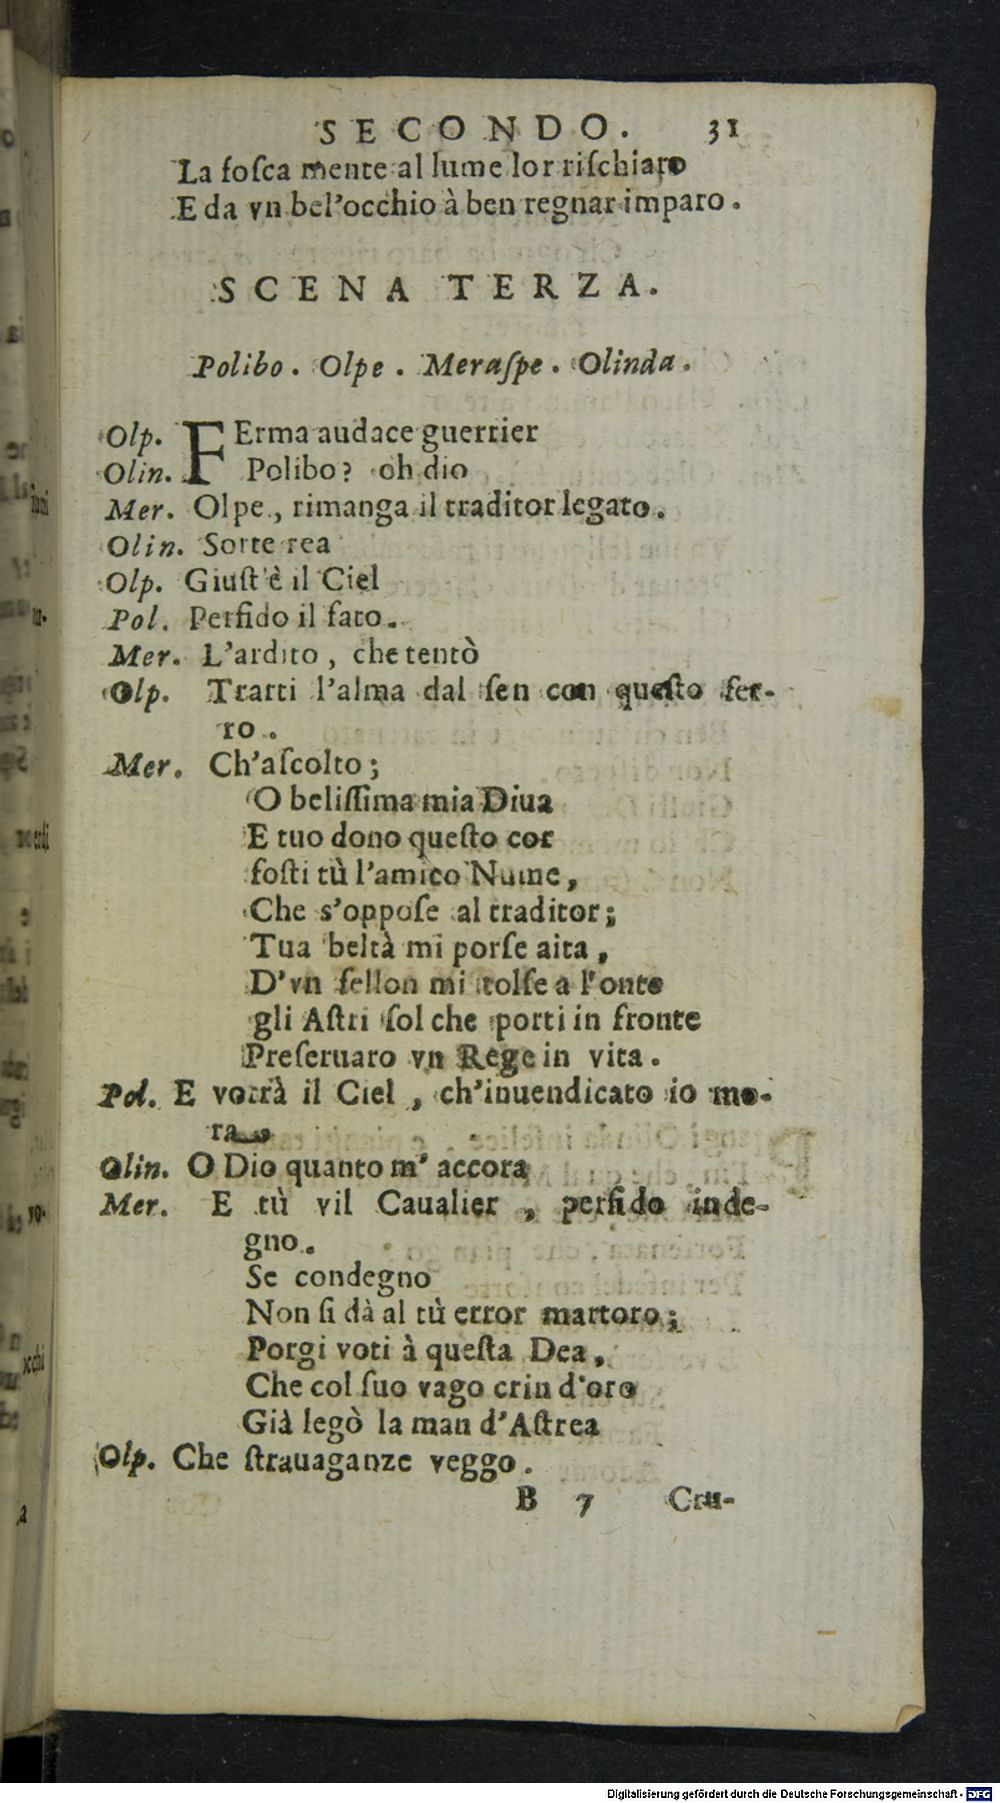 SECONDO. 31
La foſca mente al lume lor riſchiaro
E da vn bel'occhio à ben regnar imparo.
SCENA TERZA.
Polibo. Olpe. Meraſpe. Olinda.
Olp. FErma audace guerrier
Olin. Polibo? oh dio
Mer. Olpe, rimanga il traditor legato.
Olin. Sorte rea
Olp. Giuſt'è il Ciel
Pol. Perfido il fato.
Mer. L'ardito, che tentò
Olp. Trarti l'alma dal ſen con queſto fer-
ro.
Mer. Ch'aſcolto;
O beliſſima mia Diua
E tuo dono queſto cor
foſti tù l'amico Nume,
Che s'oppoſe al traditor;
Tua beltà mi porſe aita,
D'vn fellon mi tolſe a l'onte
gli Aſtri ſol che porti in fronte
Preſeruaro vn Rege in vita.
Pol. E vorrà il Ciel, ch'inuendicato io mo-
ra
Olin. O Dio quanto m'accora
Mer. E tù vil Caualier, perfido inde-
gno.
Se condegno
Non ſi dà al tù error martoro;
Porgi voti à queſta Dea,
Che col ſuo vago crin d'oro
Già legò la man d'Aſtrea
Olp. Che ſtrauaganze veggo.
B 7 Cru-
Digitalisierung gefördert durch die Deutsche Forschungsgemeinschaft - DFG